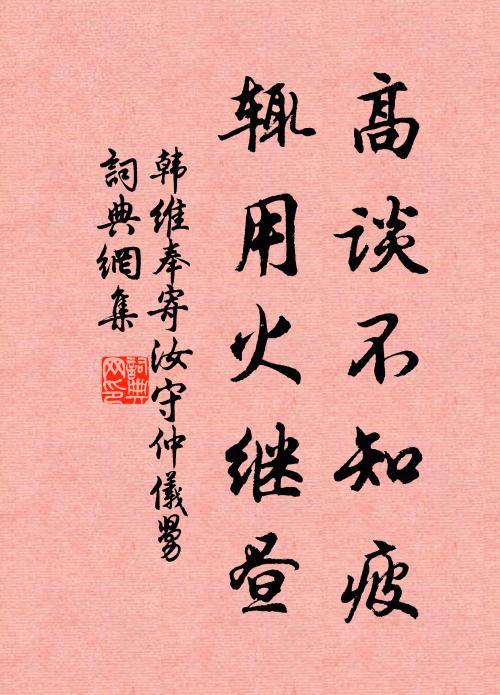 高谈不知疲
辄用火继昼
韩维奉寄汝守仲儀舅
詞典網集
詞典網印